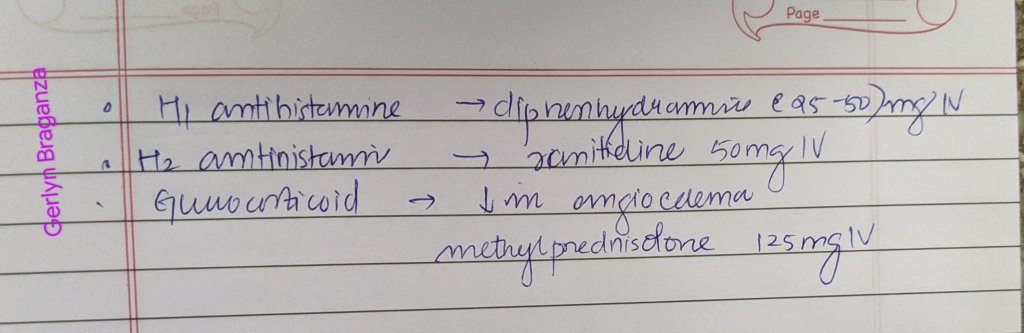 Page
Gerlyn Braganza
• H1 antihistamine → diphenhydramine (25-50) mg IV
• H2 antihistamin → ranitidine 50mg IV
• Glucocorticoid → ↓ in angioedema
methylprednisolone 125mg IV